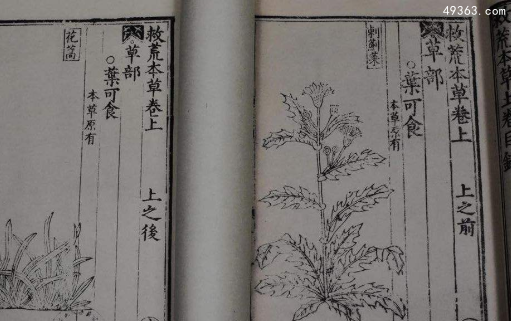 49363.com
救荒本草卷上 上之前
草部
○葉可食
本草原有
刺薊菜
救荒本草卷上 上之後
草部
○葉可食
本草原有
花蒿